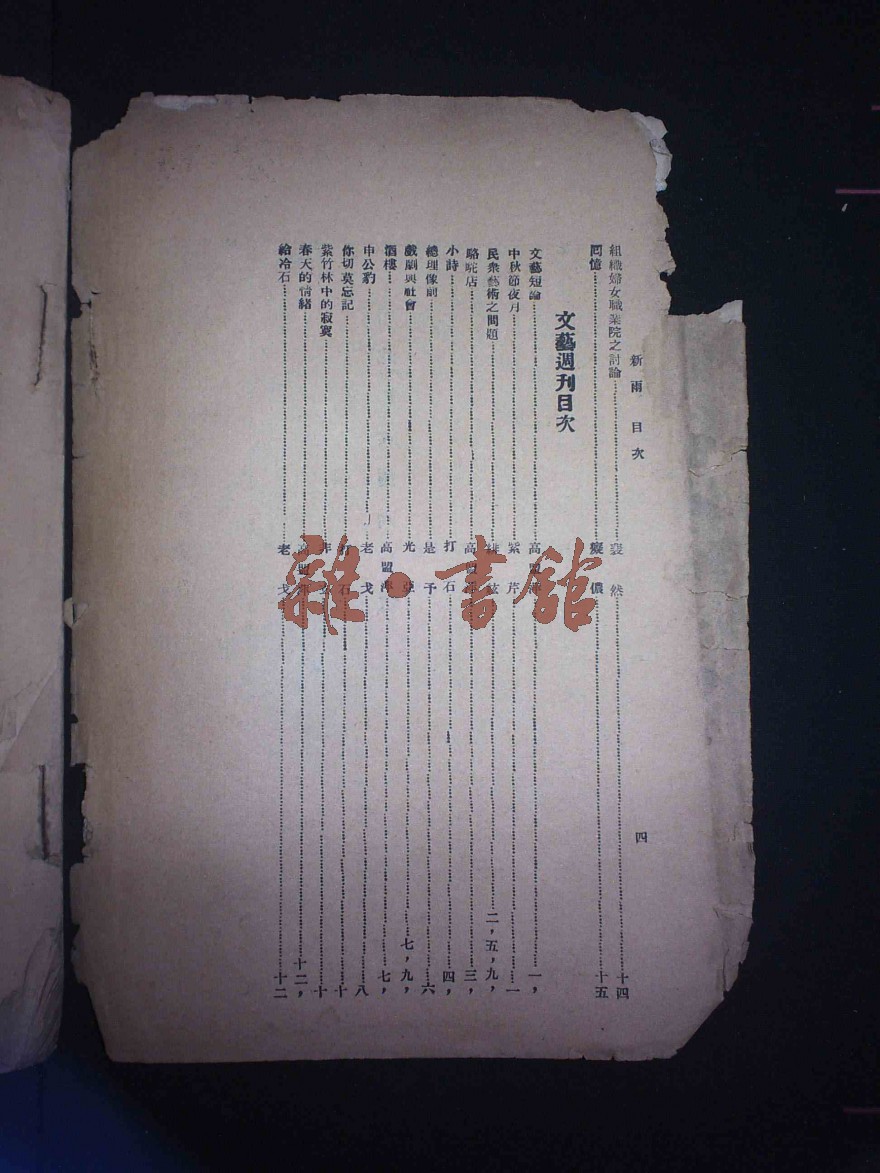 新雨 目次
四
組織婦女職業院之討論 裴然 十四
回憶 癡儂 十五
文藝週刊目次
文藝短論 高盟 一，
中秋節夜月 紫芹 一
民衆藝術之問題 二，五，九，
駱駝店 高盟 三，
小詩 打石 四，
總理像前 是予 六
戲劇與社會 光 七，九，
酒樓 高盟 七，
申公豹 老戈 八
你切莫忘記 石 十
紫竹林中的寂寞 十
春天的情緒 盟 十二，
給冷石 老戈 十二
雜·書館